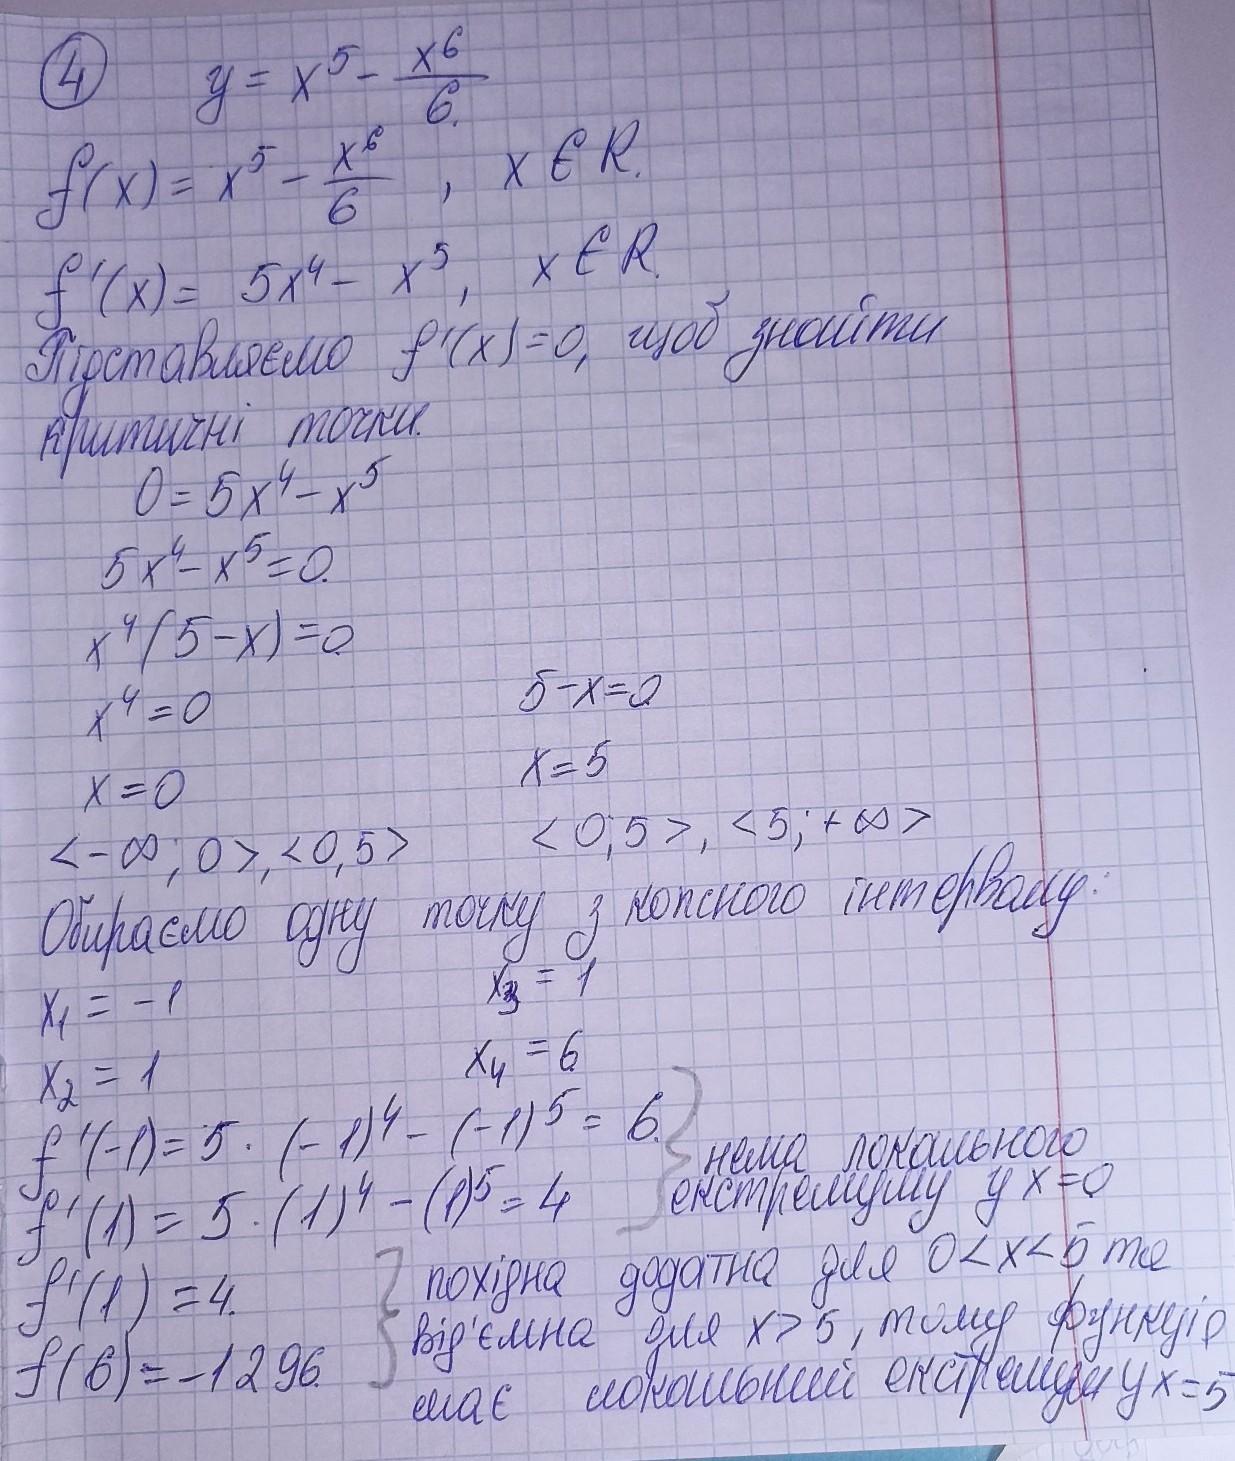 4 y = x⁵ - x⁶/6.
f(x) = x⁵ - x⁶/6, x ∈ R.
f'(x) = 5x⁴ - x⁵, x ∈ R.
Підставляємо f'(x)=0, щоб знайти
критичні точки.
0 = 5x⁴ - x⁵
5x⁴ - x⁵ = 0.
x⁴(5-x) = 0
x⁴ = 0 5-x=0
x = 0 x = 5
<-∞; 0>, <0, 5> <0; 5>, <5; +∞>
Обираємо одну точку з кожного інтервалу:
x₁ = -1 x₃ = 1
x₂ = 1 x₄ = 6
f'(-1) = 5 · (-1)⁴ - (-1)⁵ = 6.
f'(1) = 5 · (1)⁴ - (1)⁵ = 4
нема локального
екстремуму у x=0
f'(1) = 4.
f(6) = -1296.
похідна додатна для 0<x<5 та
від'ємна для x>5, тому функція
має локальний екстремум у x=5